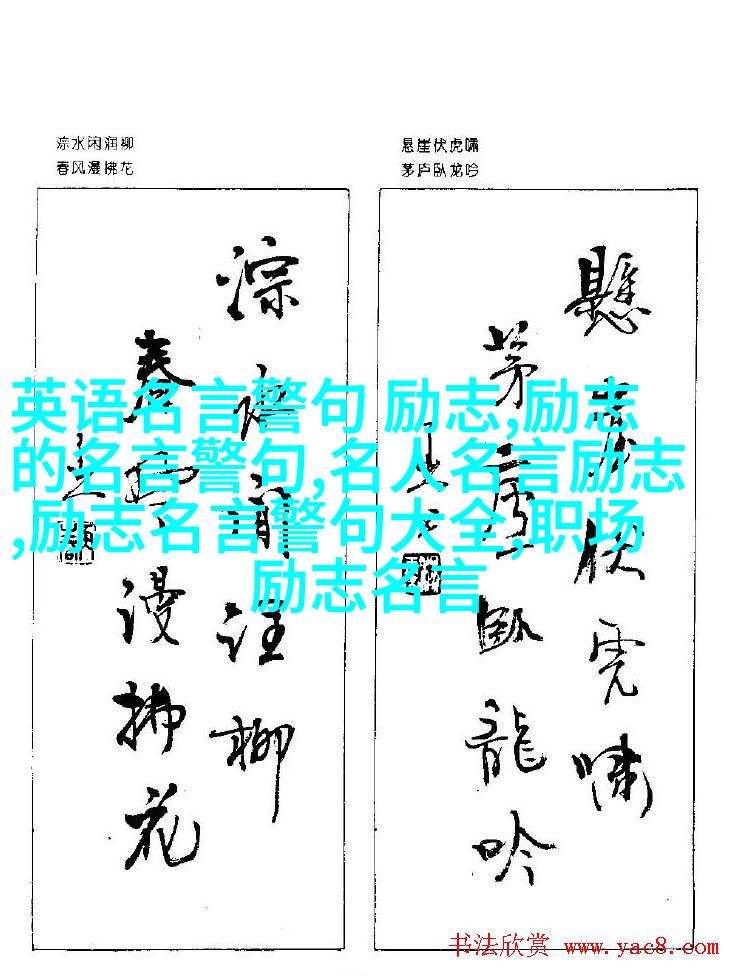 淙水闲润柳
春风漫拂花
悬崖伏虎啸
茅庐卧龙吟
英语名言警句 励志,励志
的名言警句,名人名言励志
,励志名言警句大全,职场
励志名言
懸崖伏虎嘯
茅廬臥龍吟
淙水閒润柳
春风漫拂花
书法欣赏 www.yac8.com